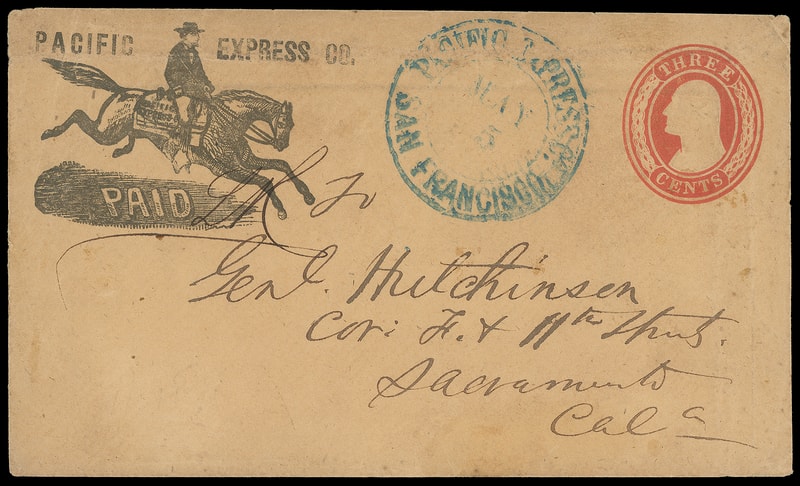 PACIFIC EXPRESS CO.
PAID
PACIFIC EXPRESS CO.
MAY
5
SAN FRANCISCO
THREE
CENTS
To
Genl. Hutchinson
Cor: F. & 11th Street.
Sacramento
Cala